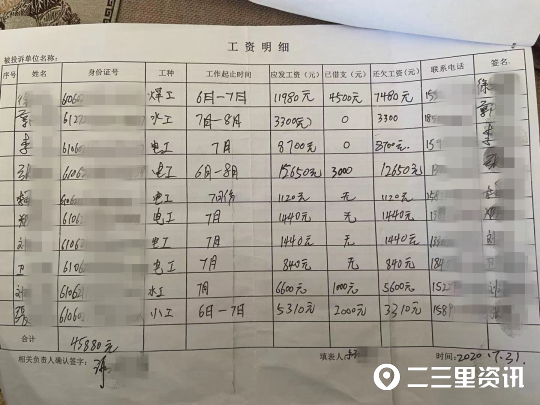 工资明细
被投诉单位名称：
序号 姓名 身份证号 工种 工作起止时间 应发工资（元） 已借支（元） 还欠工资（元） 联系电话 签名
徐 6106 焊工 6月一7月 11980元 4500元 7480元 155 徐
郭 6127 水工 7月一8月 3300元 0 3300 185 郭
李 61060 电工 7月 8700元 0 8700元 159 李
61060 电工 6月一8月 15650元 3000 12650元 15
6106 电工 7月份 1120元 无 1120元 158
6106 电工 7月 1440元 无 1440元
刘 6106 电工 7月 1440元 无 1440元 刘
卫 6106 电工 7月 840元 无 840元 184 卫
刘 61062 水工 7月 6600元 1000元 5600元 152
张 61060 小工 6月一7月 5310元 2000元 3310元 1589
合计 45880元
相关负责人确认签字： 填表人： 时间：2020.7.31.
二三里资讯